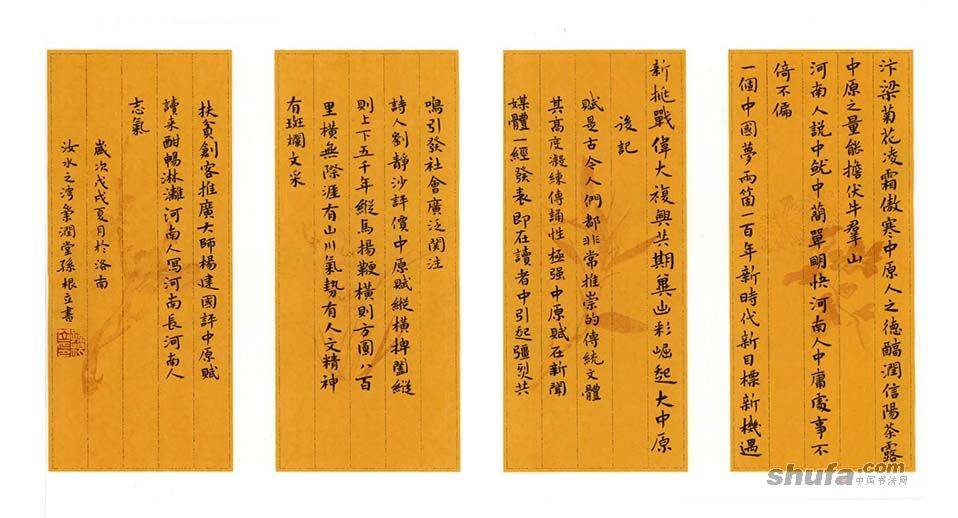 汴梁菊花凌霜傲寒中原人之德醹潤信陽茶露
中原之量能擔伏牛羣山
河南人説中就中蕑單明快河南人中庸處事不
倚不偏
一個中國夢兩箇一百年新時代新目標新機遇
新挑戰偉大複興共期冀出彩崛起大中原
後記
賦是古今人們都非常推崇的傳統文體
其高度凝練傳誦性極强中原賦在新聞
媒體一經發表即在讀者中引起彊烈共
鳴引發社會廣泛関注
詩人劉靜沙評價中原賦縱橫捭闔縱
則上下五千年縱馬揚鞭橫則方圓八百
里橫無際涯有山川氣勢有人文精神
有斑斕文采
扶貧創客推廣大師楊建國評中原賦
讀来酣暢淋灕河南人寫河南長河南人
志氣
歲次戊戌夏月於洛南
汝水之湾潤堂孫根立書
shufa.com
中国书法网